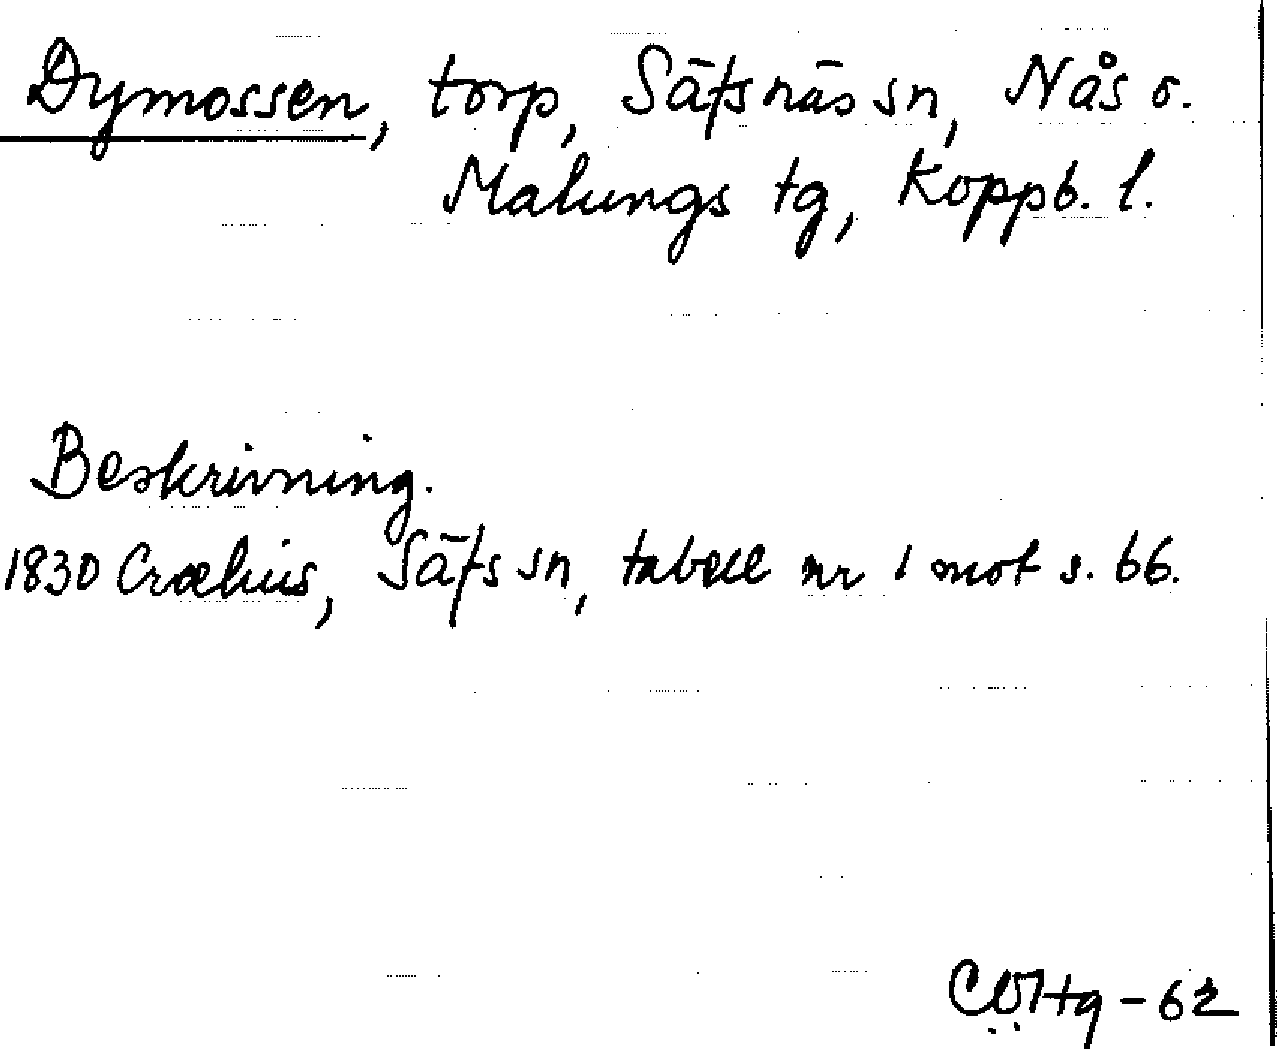 Dymossen, torp, Säfsnäs sn, Nås o.
Malungs tg, Koppb. l.
Beskrivning.
1830 Crælius, Säfs sn, tabell nr 1 mot s. 66.
-62